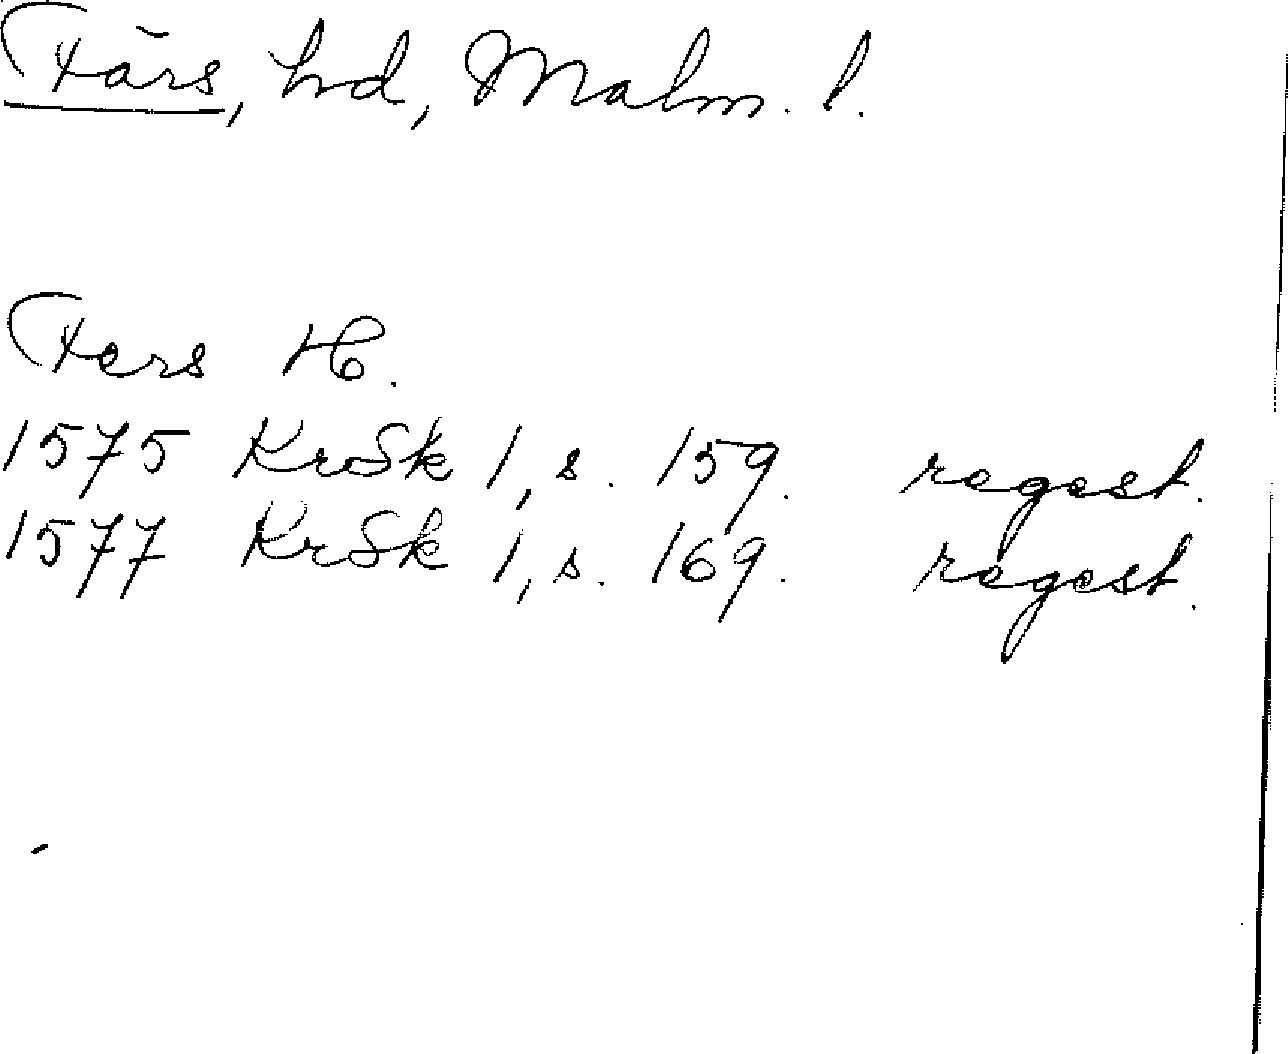 Färs, hd, Malm. l.
Fers H.
1575 KrSk 1, s. 159. regest.
1577 KrSk 1, s. 169. regest.